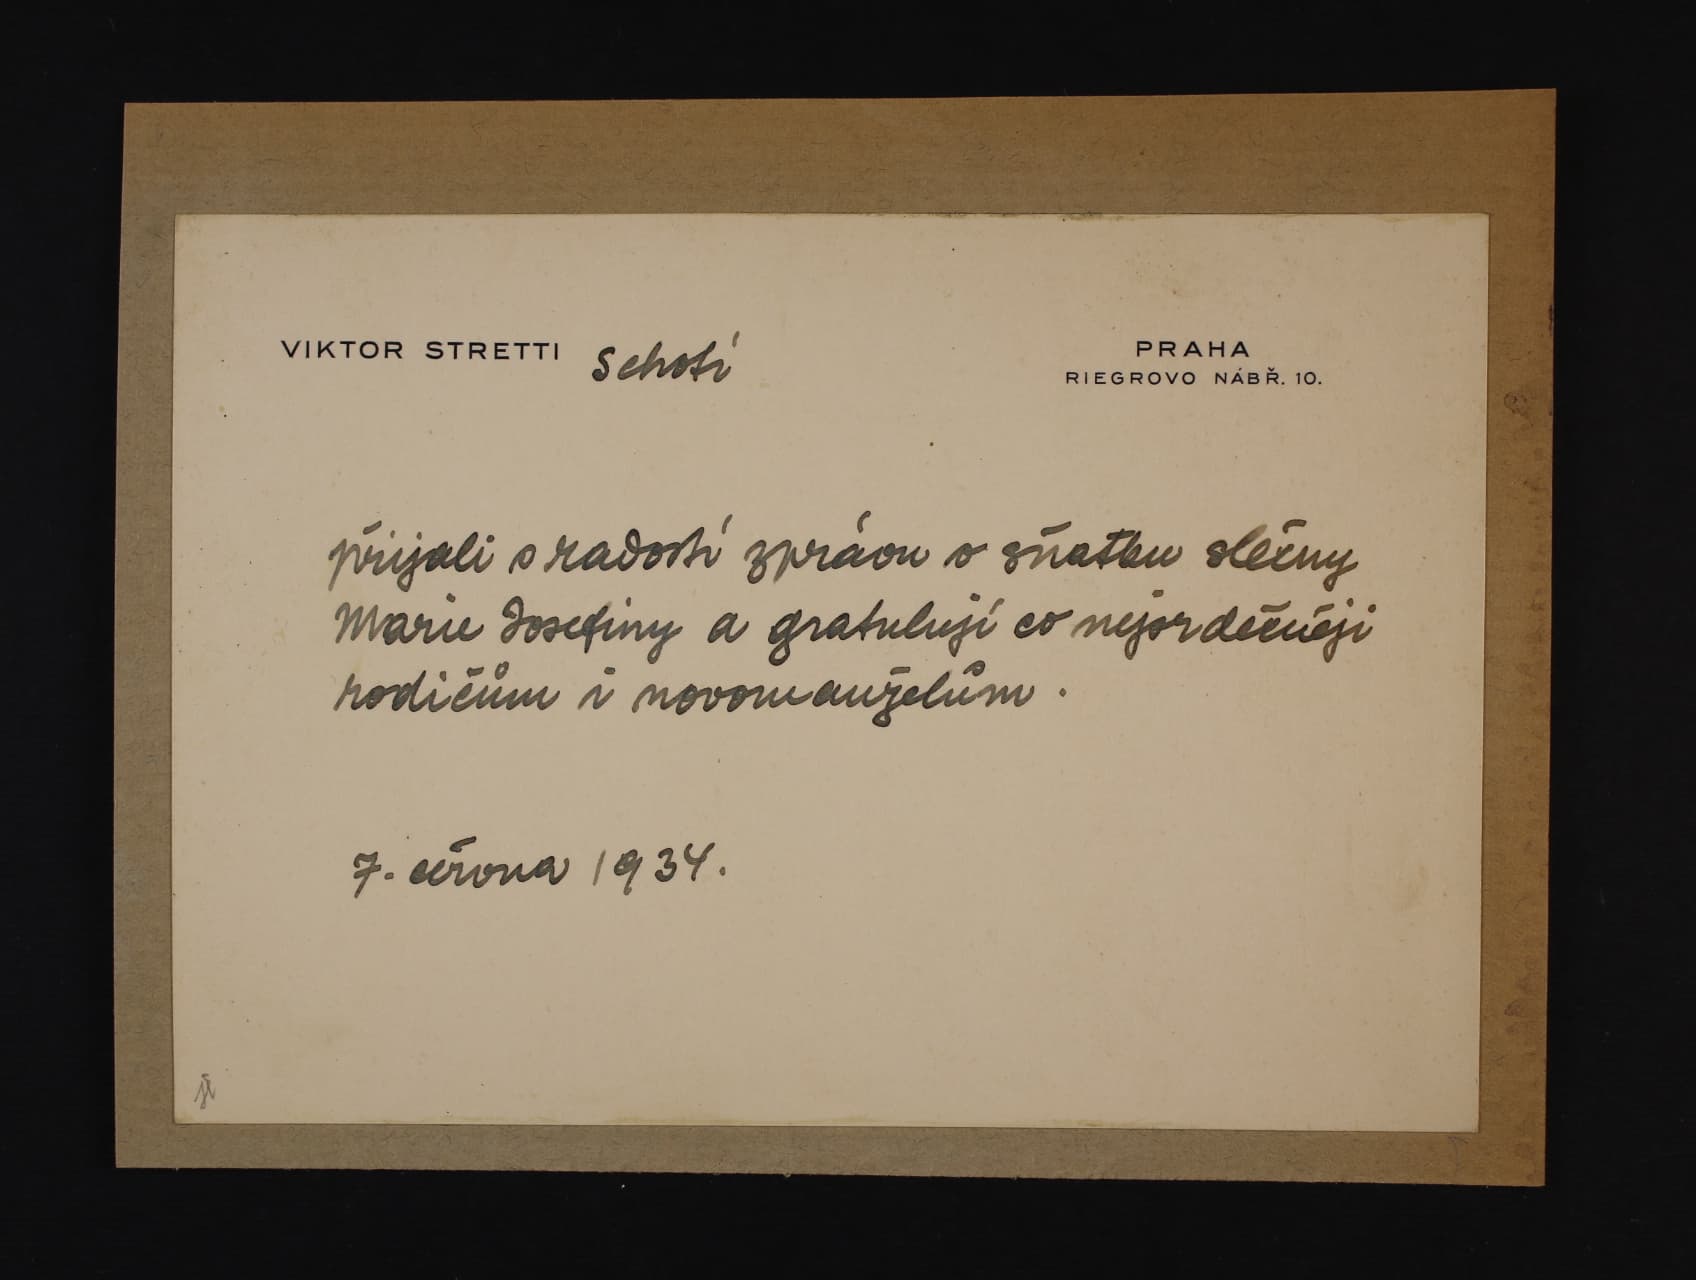 VIKTOR STRETTI s chotí
PRAHA
RIEGROVO NÁBŘ. 10.
přijali s radostí zprávu o sňatku slečny
Marie Josefiny a gratulují co nejsrdečněji
rodičům i novomanželům.
7. června 1934.